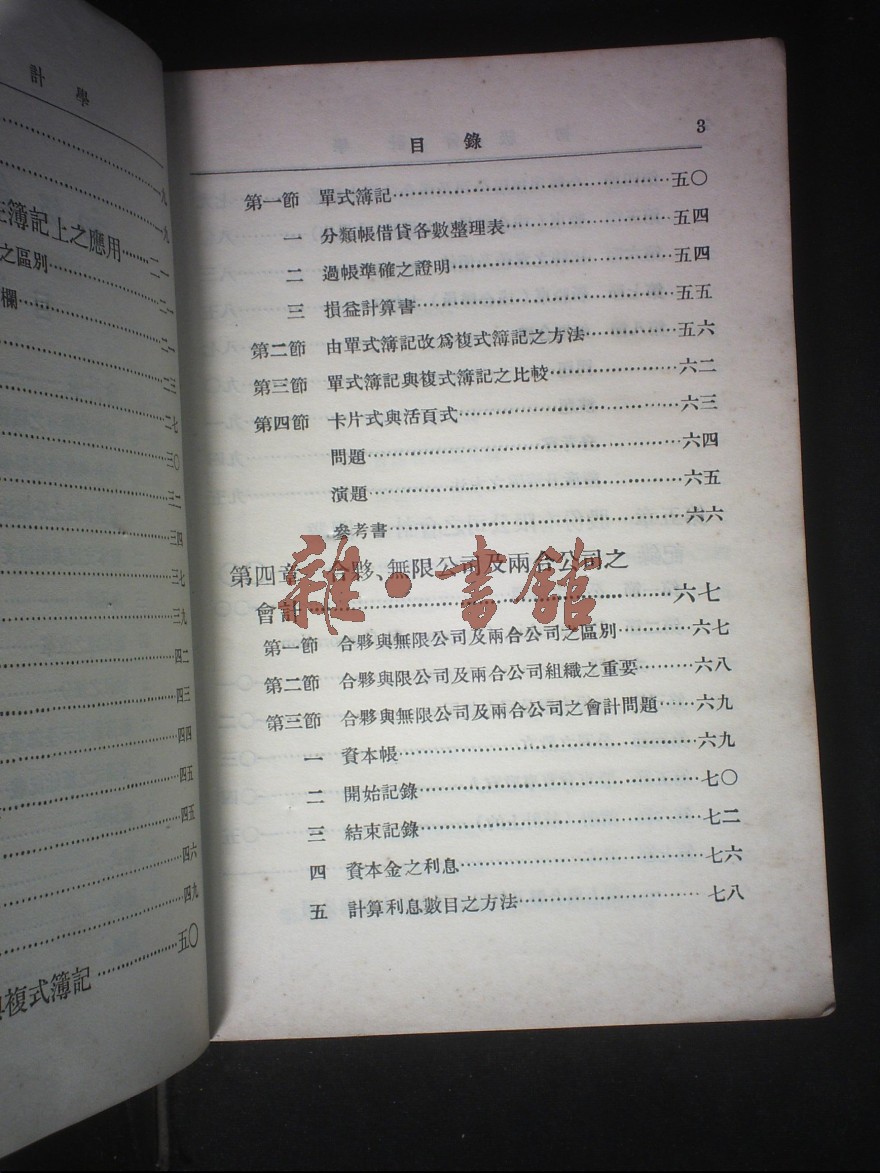 計學
九
九
在簿記上之應用……二一
之區別……二一
欄……二一
二一
二三
二七
三〇
三二
三四
三七
三九
四二
四三
四四
四五
四五
四六
四九
與複式簿記……五〇
目錄 3
第一節 單式簿記……五〇
一 分類帳借貸各數整理表……五四
二 過帳準確之證明……五四
三 損益計算書……五五
第二節 由單式簿記改爲複式簿記之方法……五六
第三節 單式簿記與複式簿記之比較……六二
第四節 卡片式與活頁式……六三
問題……六四
演題……六五
參考書……六六
第四章 合夥、無限公司及兩合公司之
會計……六七
第一節 合夥與無限公司及兩合公司之區別……六七
第二節 合夥與限公司及兩合公司組織之重要……六八
第三節 合夥與無限公司及兩合公司之會計問題……六九
一 資本帳……六九
二 開始記錄……七〇
三 結束記錄……七二
四 資本金之利息……七六
五 計算利息數目之方法……七八
雜·書館